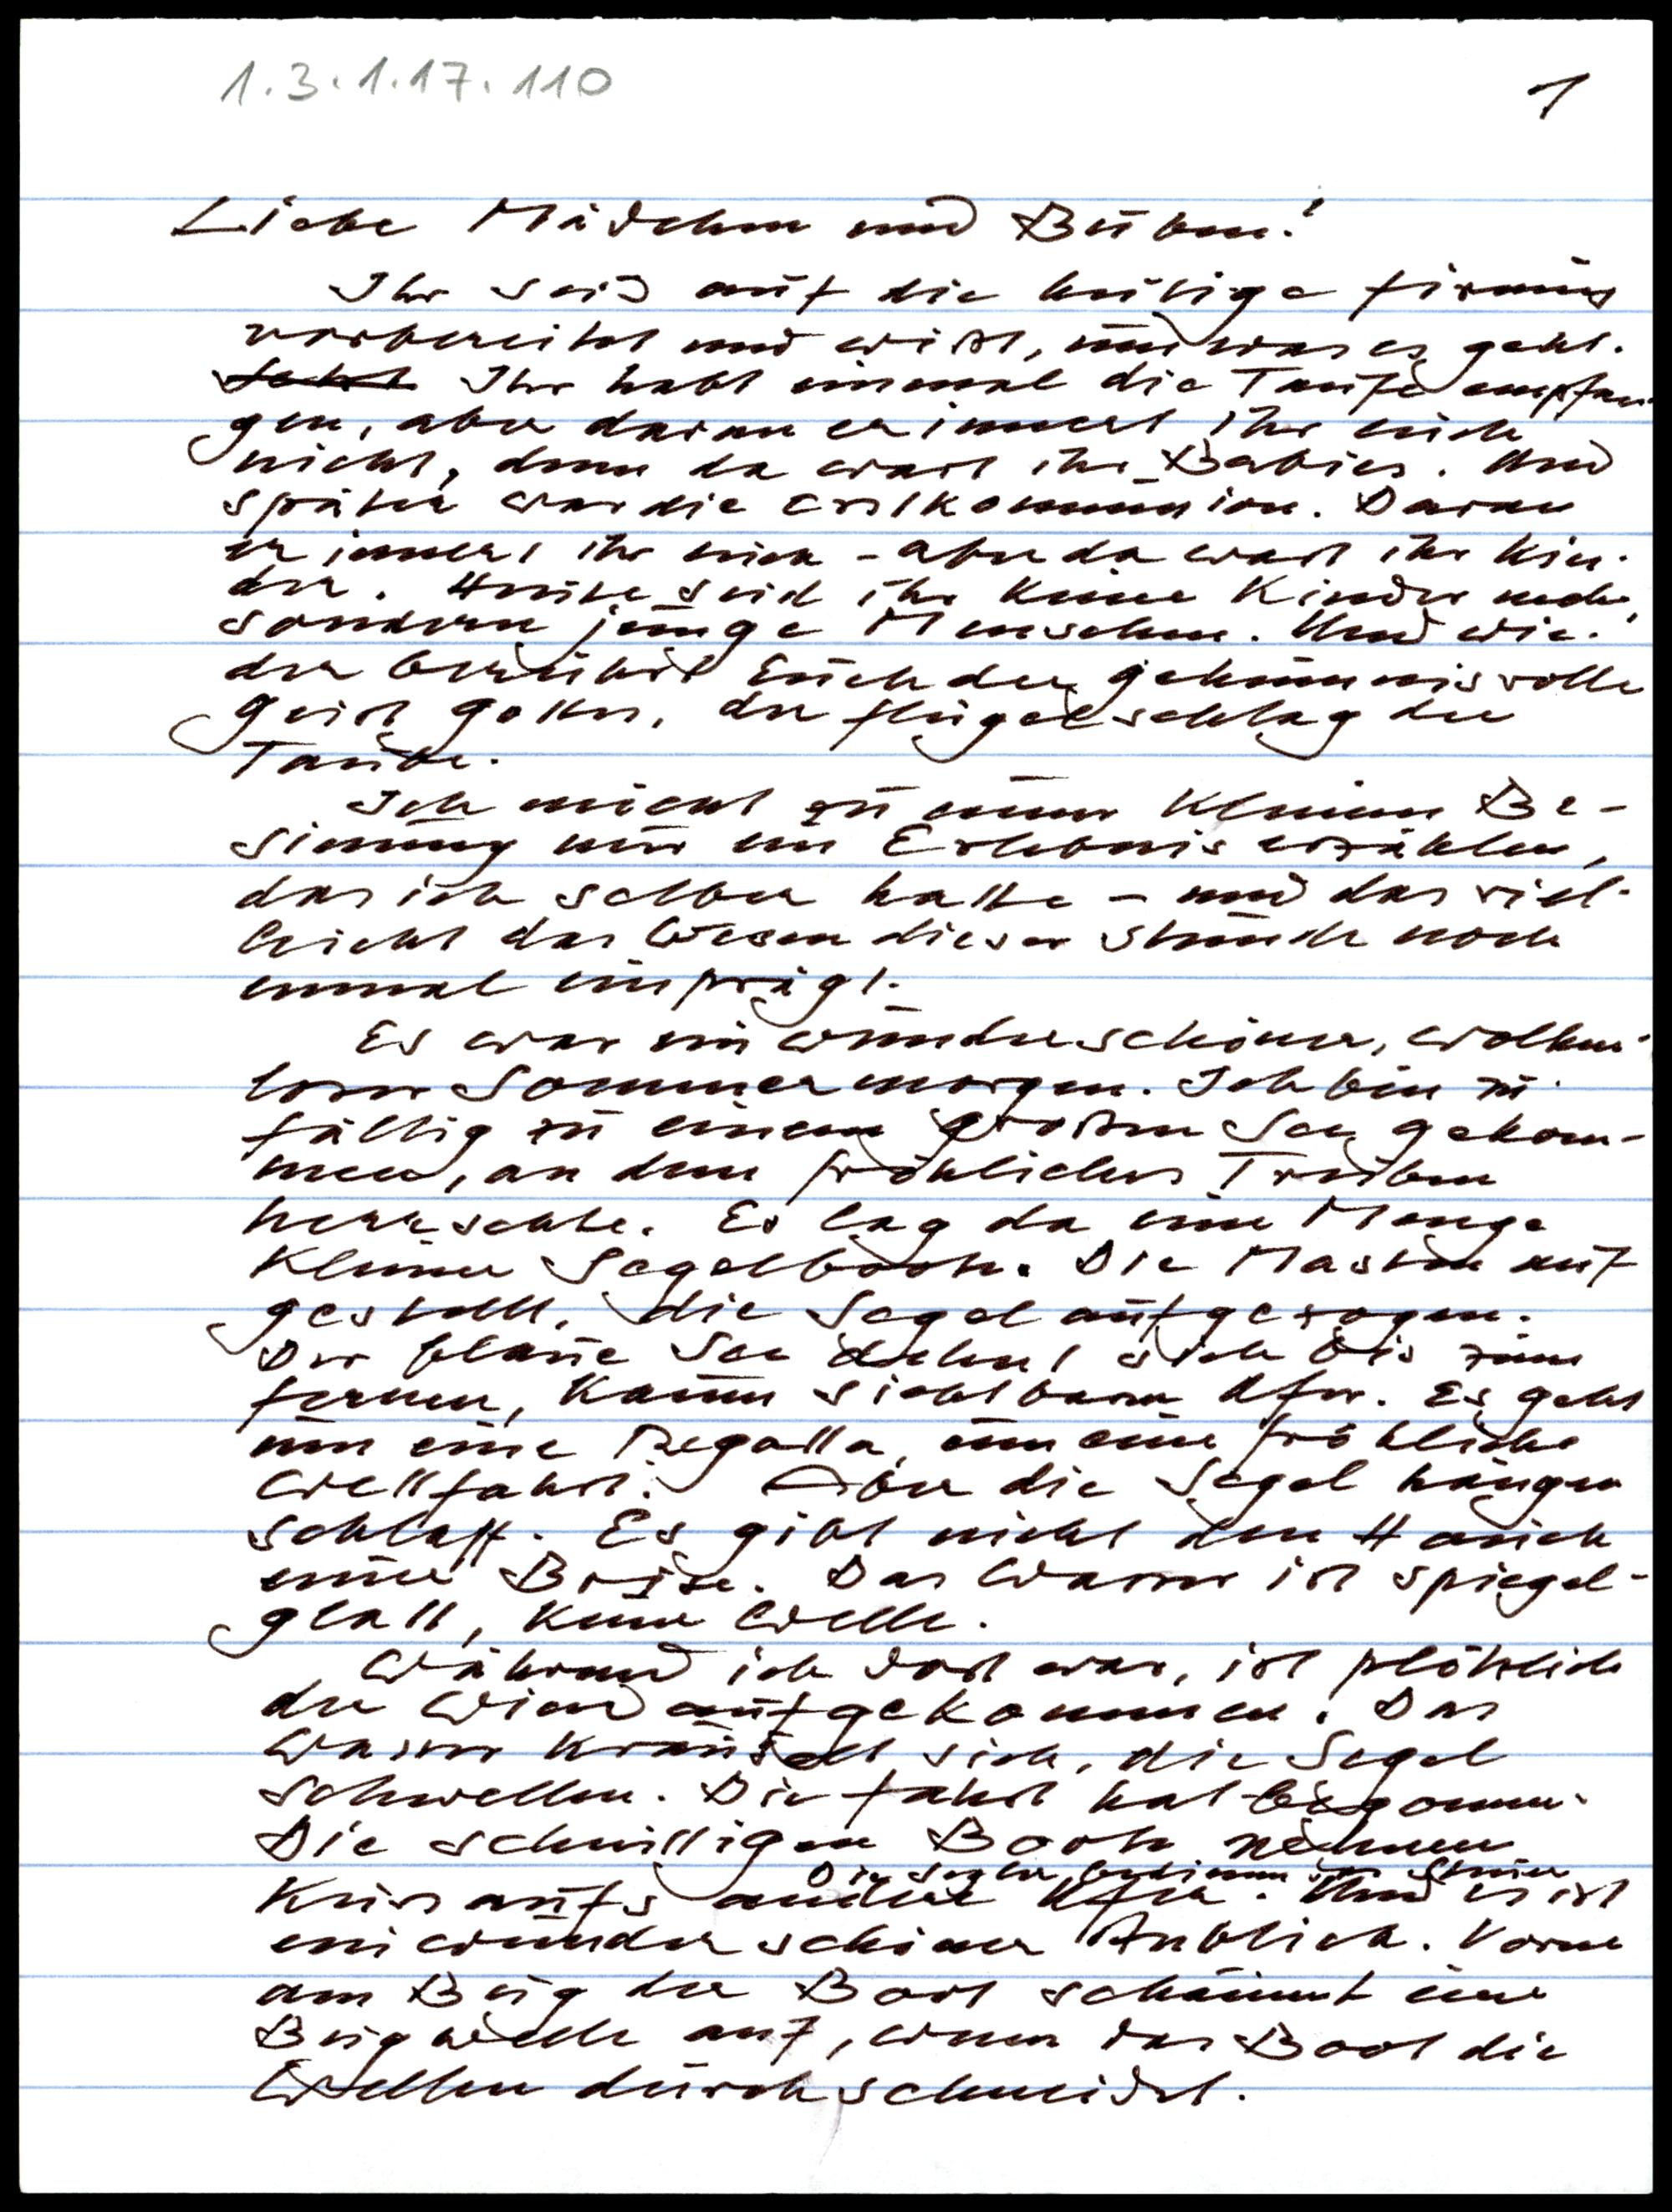 1.3.1.17.110
1
Liebe Mädchen und Buben!
Ihr seid auf die heilige Firmung
vorbereitet und wißt, um was es geht.
Ihr habt einmal die Taufe empfan-
gen, aber daran erinnert ihr euch
nicht, denn da wart ihr Babies. Und
später war die Erstkommunion. Daran
erinnert ihr euch - aber da wart ihr Kin-
der. Heute seid ihr keine Kinder mehr,
sondern junge Menschen. Und wie-
der berührt Euch der geheimnisvolle
Geist Gottes, der Flügelschlag der
Taube.
Ich möcht zu einer kleinen Be-
sinnung nur ein Erlebnis erzählen,
das ich selber hatte - und das viel-
leicht das Wesen dieser Stunde noch
einmal einprägt.
Es war ein wunderschöner, wolken-
loser Sommermorgen. Ich bin zu-
fällig zu einem großen See gekom-
men, an dem fröhliches Treiben
herrschte. Es lag da eine Menge
kleiner Segelboote. Die Masten auf
gestellt, die Segel aufgezogen.
Der blaue See dehnt sich bis zum
fernen, kaum sichtbaren Ufer. Es geht
um eine Regatta, um eine fröhliche
Wettfahrt. Aber die Segel hängen
schlaff. Es gibt nicht den Hauch
einer Brise. Das Wasser ist spiegel-
glatt, keine Welle.
Während ich dort war, ist plötzlich
der Wind aufgekommen. Das
Wasser kräuselt sich, die Segel
schwellen. Die Fahrt hat begonnen.
Die schnittigen Boote nehmen
Die Segler bedienen das Steuer
Kurs aufs andere Ufer. Und es ist
ein wunderschöner Anblick. Vorne
am Bug der Boot schäumt eine
Bugwelle auf, wenn das Boot die
Wellen durchschneidet.